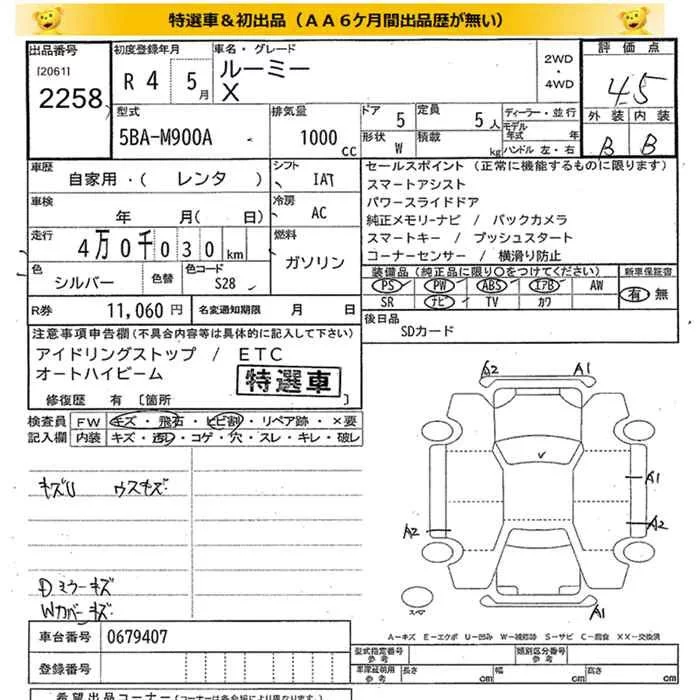 特選車＆初出品（ＡＡ６ケ月間出品歴が無い）
出品番号
[2061]
2258
初度登録年月
R 4 5月
車名・グレード
ルーミー
X
2WD
・
4WD
評価点
4.5
外装 内装
B B
型式
5BA-M900A
排気量
1000 cc
ドア 5
形状 W
定員 5人
積載 kg
ディーラー・並行
モデル年式 年
ハンドル 左・右
車歴
自家用・( レンタ )
シフト
IAT
車検
年 月( 日)
冷房
AC
走行
4万0千030km
燃料
ガソリン
色
シルバー
色替
色コード
S28
R券 11,060円
名変通知期限 月 日
セールスポイント（正常に機能するものに限ります）
スマートアシスト
パワースライドドア
純正メモリーナビ / バックカメラ
スマートキー / プッシュスタート
コーナーセンサー / 横滑り防止
装備品（純正品に限り○をつけてください）
新車保証書
PS PW ABS エアB AW
SR ナビ TV カワ
有 無
後日品
SDカード
注意事項申告欄(不具合内容等は具体的に記入して下さい)
アイドリングストップ / ETC
オートハイビーム
特選車
修復歴 有 〔箇所 〕
検査員
記入欄
FW キズ・飛石・ヒビ割・リペア跡・×要
内装 キズ・コゲ・穴・スレ・キレ・破レ
キズU ウスキズ
Dミラーキズ
Wカバーキズ
A2 A1
A1
A2 A2
A1
スペア
A－キズ E－エクボ U－凹み W－補修跡 S－サビ C－腐食 XX－交換済
車台番号 0679407
登録番号
型式指定番号
参考
類別区分番号
参考
車庫証明用
参考
長さ cm 幅 cm 高さ cm
希望出品コーナー